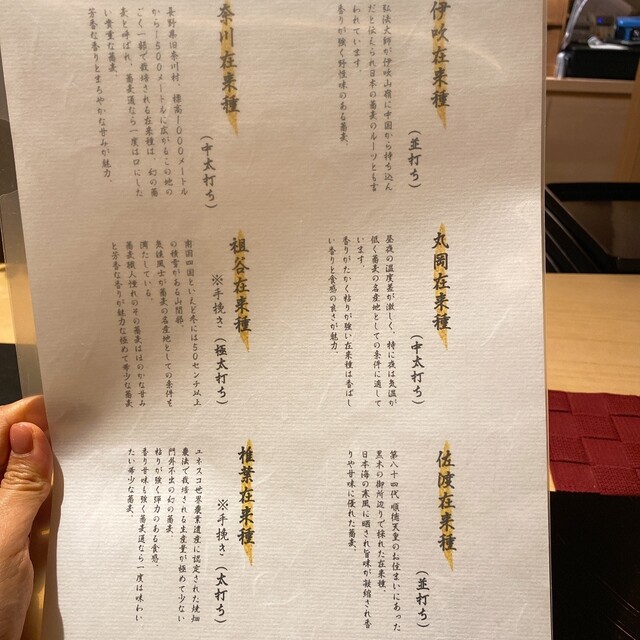 伊吹在来種
(並打ち)
弘法大師が伊吹山嶺に中国から持ち込ん
だと伝えられ日本の蕎麦のルーツとも言
われています。
香りが強く野性味のある蕎麦。
奈川在来種
(中太打ち)
長野県旧奈川村、標高1000メートル
から1500メートルに広がるこの地の
ごく一部で栽培される在来種は、幻の蕎
麦と呼ばれ、蕎麦通なら一度は口にした
い貴重な蕎麦。
芳香な香りとまろやかな甘みが魅力。
丸岡在来種
(中太打ち)
昼夜の温度差が激しく、特に夜は気温が
低く蕎麦の名産地としての条件に適して
います。
香りがたかく粘りが強い在来種は香ばし
い香りと食感の良さが魅力。
祖谷在来種
※手挽き(極太打ち)
南国四国といえど冬には50センチ以上
の積雪がある山間部。
気候風土が蕎麦の名産地としての条件を
満たしている。
蕎麦職人憧れのその蕎麦はほのかな甘み
と芳香な香りが魅力な極めて希少な蕎麦
佐渡在来種
(並打ち)
第八十四代 順徳天皇のお住まいにあった
黒木の御所辺りで採れた在来種。
日本海の寒風に晒され旨味が凝縮され香
りや甘味に優れた蕎麦。
椎葉在来種
※手挽き(太打ち)
ユネスコ世界農業遺産に認定された焼畑
農法で栽培される生産量が極めて少ない
門外不出の幻の蕎麦。
粘りが強く弾力のある食感、
香り甘味も強く蕎麦通なら一度は味わい
たい希少な蕎麦。